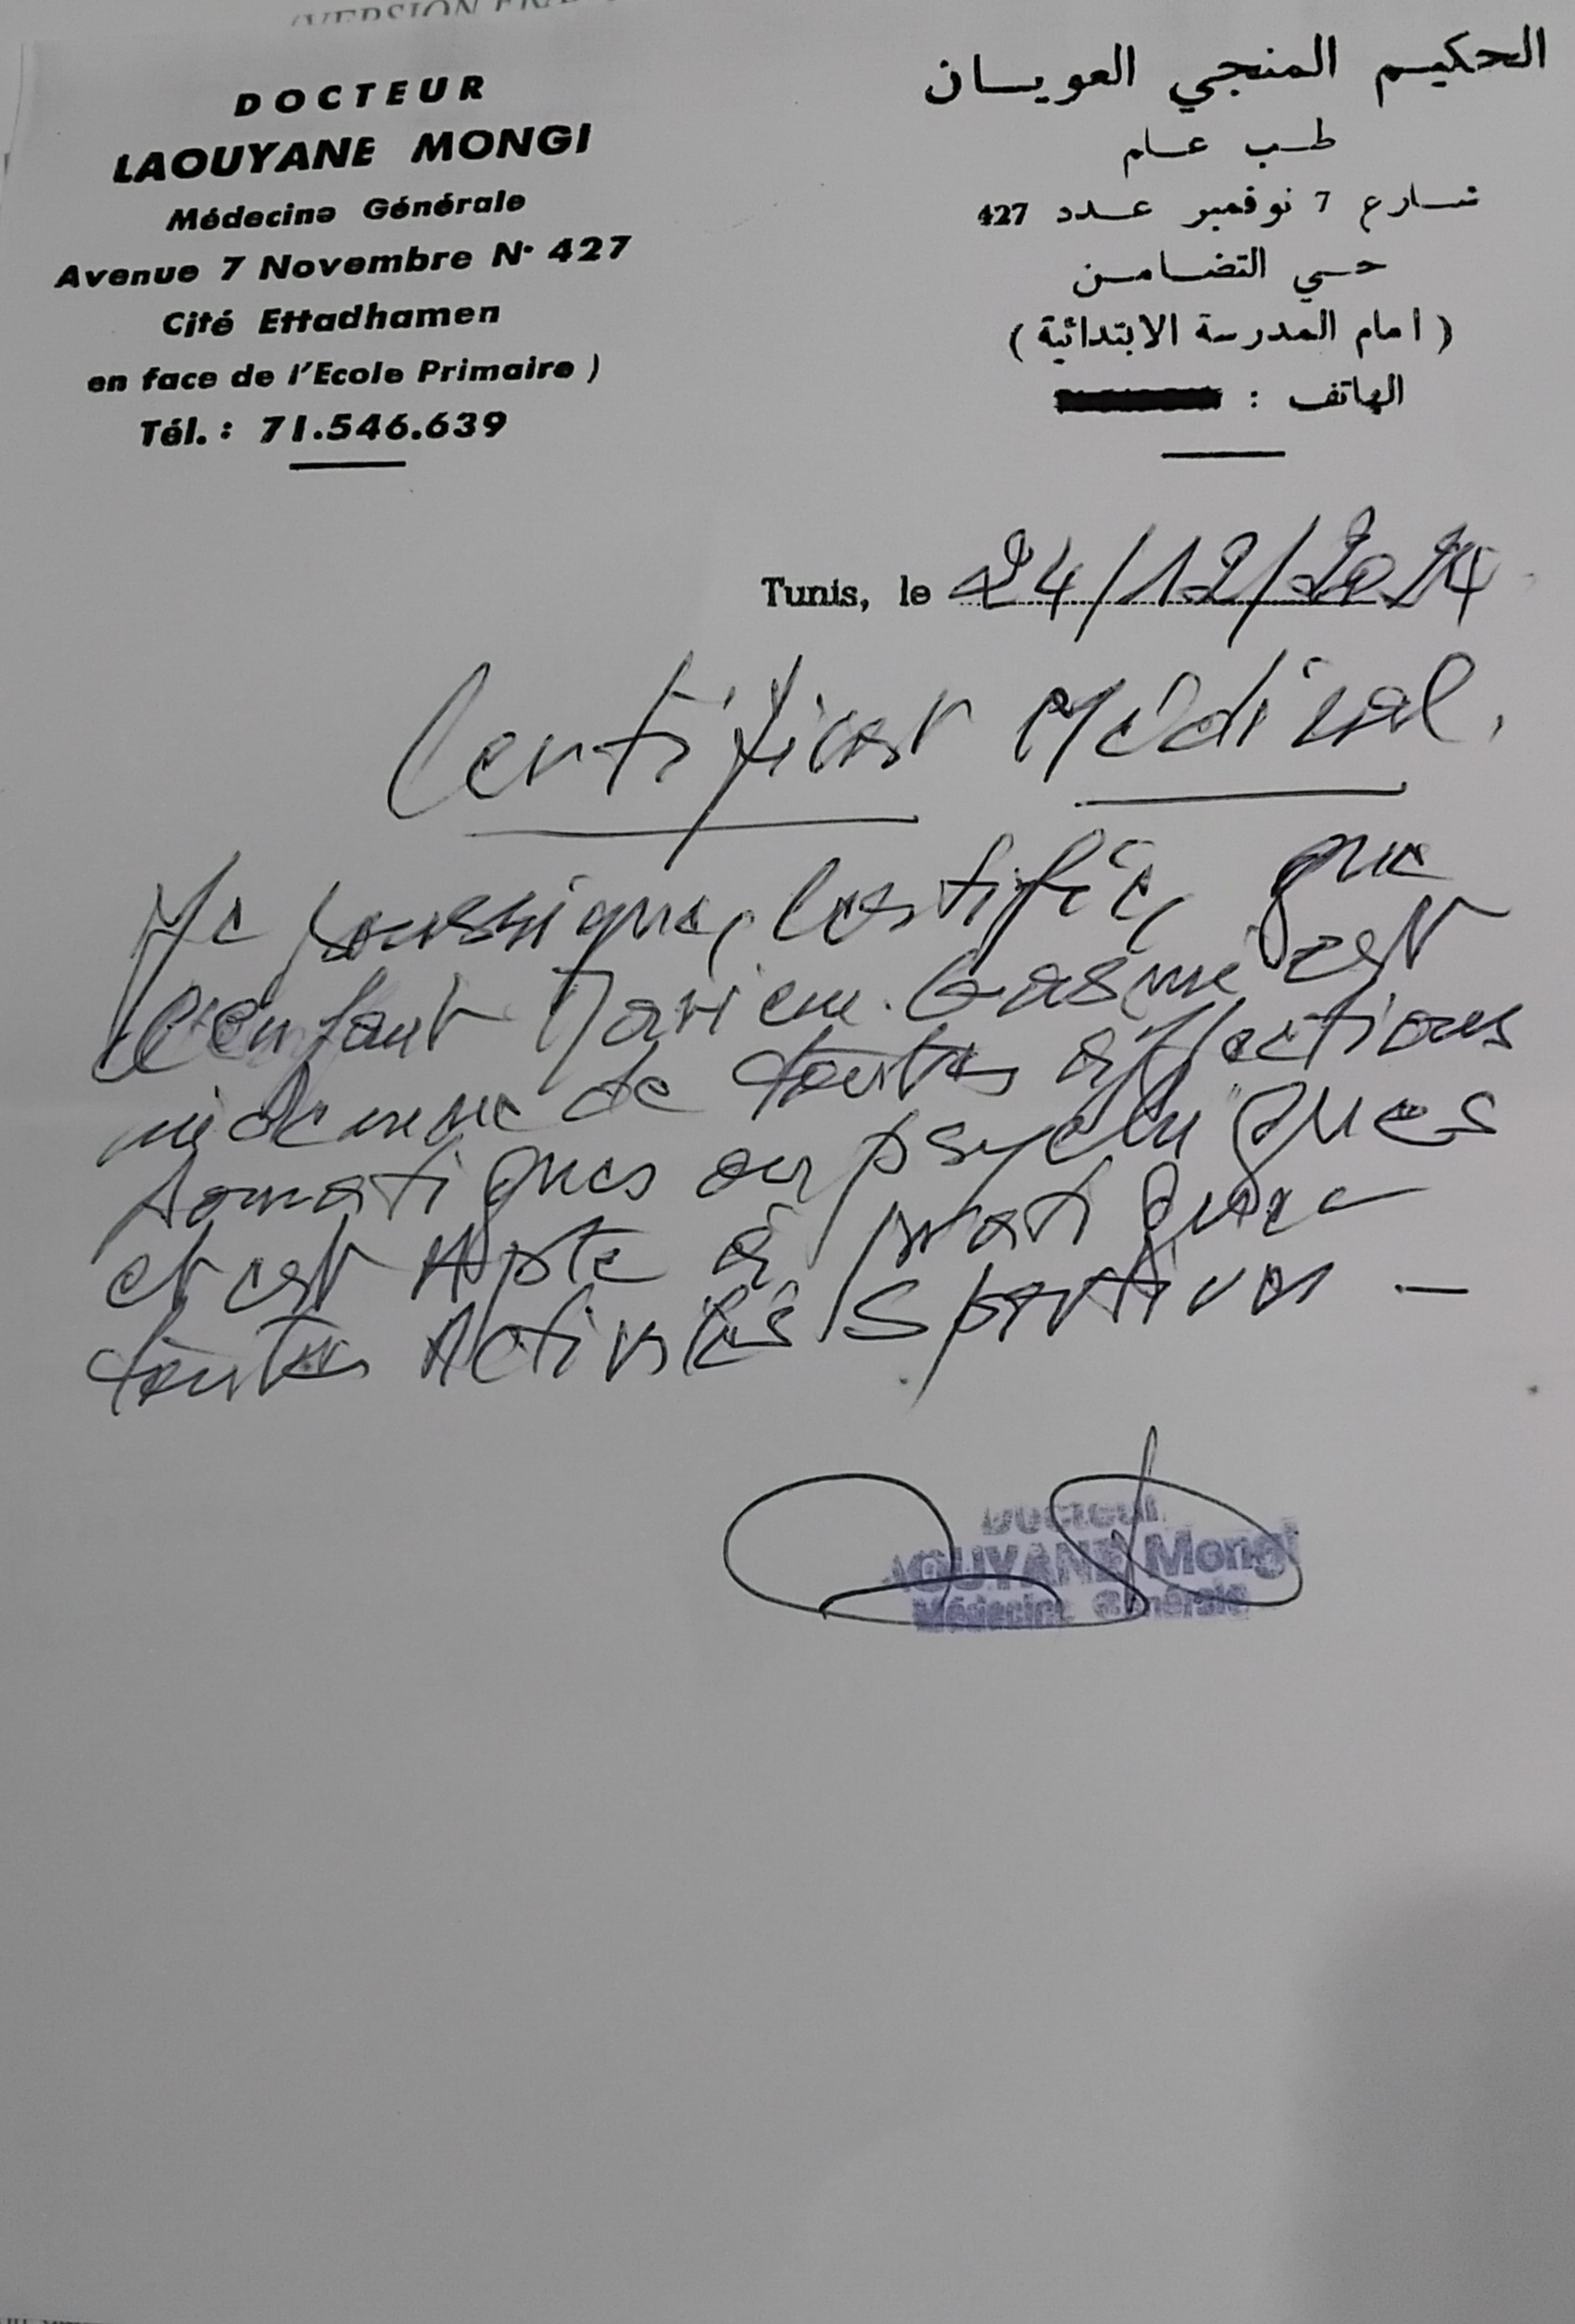 DOCTEUR
LAOUYANE MONGI
Médecine Générale
Avenue 7 Novembre N° 427
Cité Ettadhamen
en face de l'Ecole Primaire )
Tél. : 71.546.639
الحكيم المنجي العويسان
طب عام
شارع 7 نوفمبر عدد 427
حي التضامن
( امام المدرسة الابتدائية )
الهاتف :
Tunis, le 24/12/2024
Certificat Médical.
Je soussigné, certifie, que
l'enfant Mariem Gasmi est
indemne de toutes affections
somatiques ou psychiques
et est Apte à pratiquer
toutes Activités Sportives —
Docteur
LAOUYANE Mongi
Médecine Générale